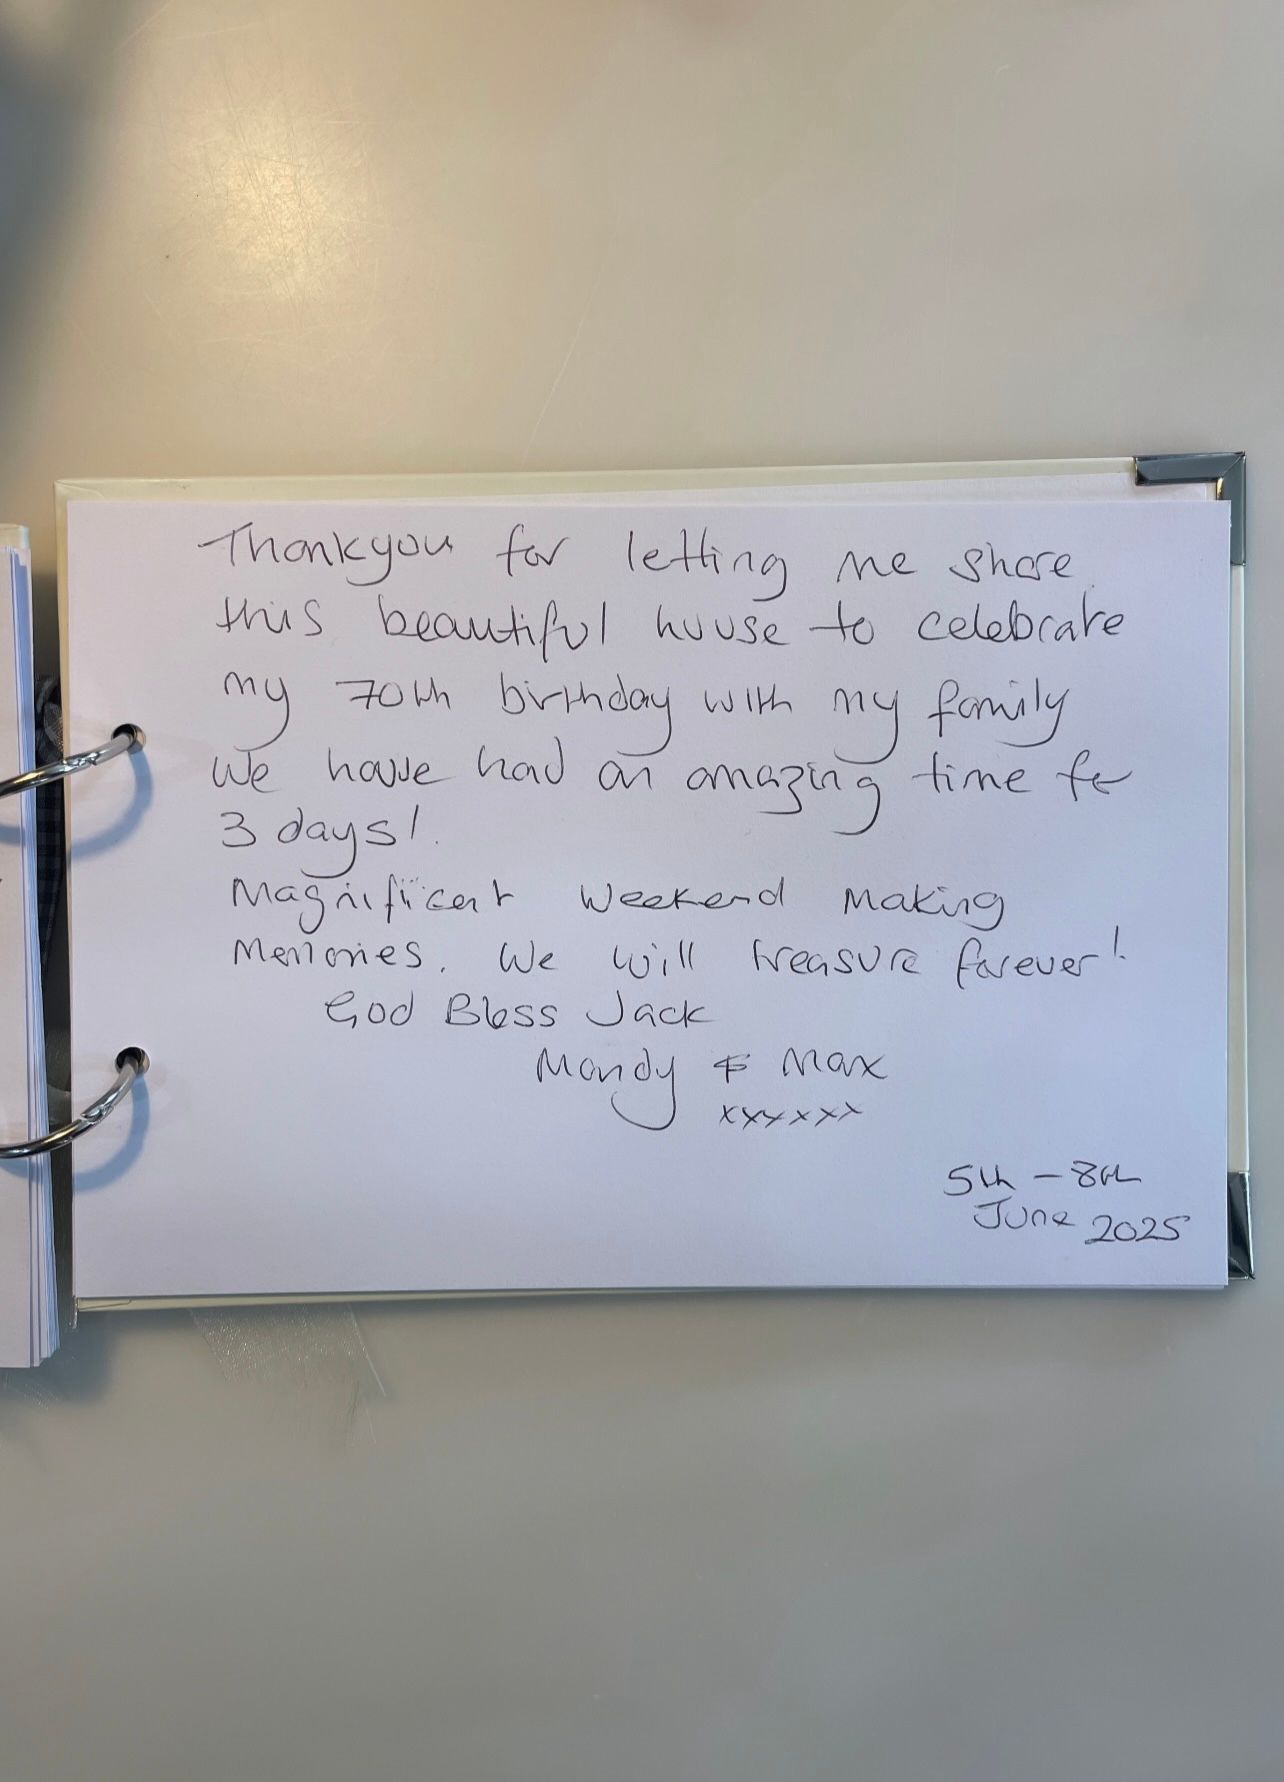 Thankyou for letting me share
this beautiful house to celebrate
my 70th birthday with my family
We have had an amazing time for
3 days!
Magnificent Weekend Making
Memories. We will treasure forever!
God Bless Jack
Mandy & Max
xxxxxx
5th - 8th
June 2025